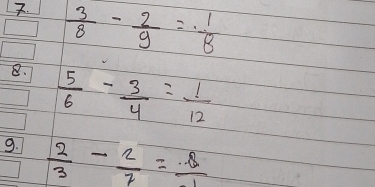 7. 3/8 - 2/9 = 1/8
8. 5/6 - 3/4 = 1/12
9. 2/3 - 2/7 = 8/